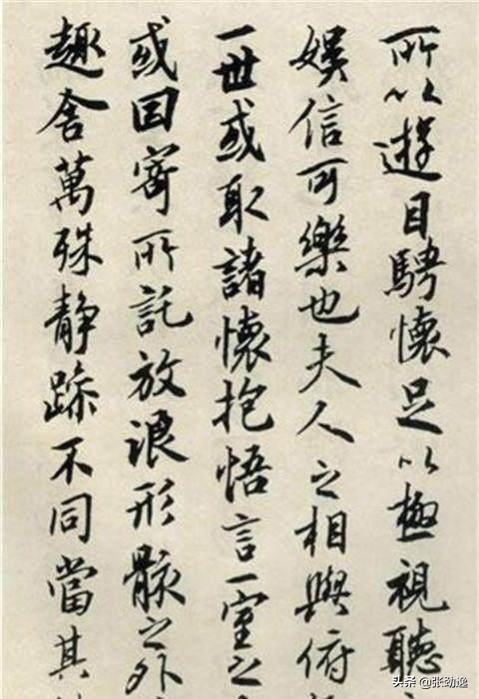 所以遊目騁懷足以極視聽
娛信可樂也夫人之相與俯
一世或取諸懷抱悟言一室之
或因寄所託放浪形骸之外
趣舍萬殊靜躁不同當其
头条 @张劲逸